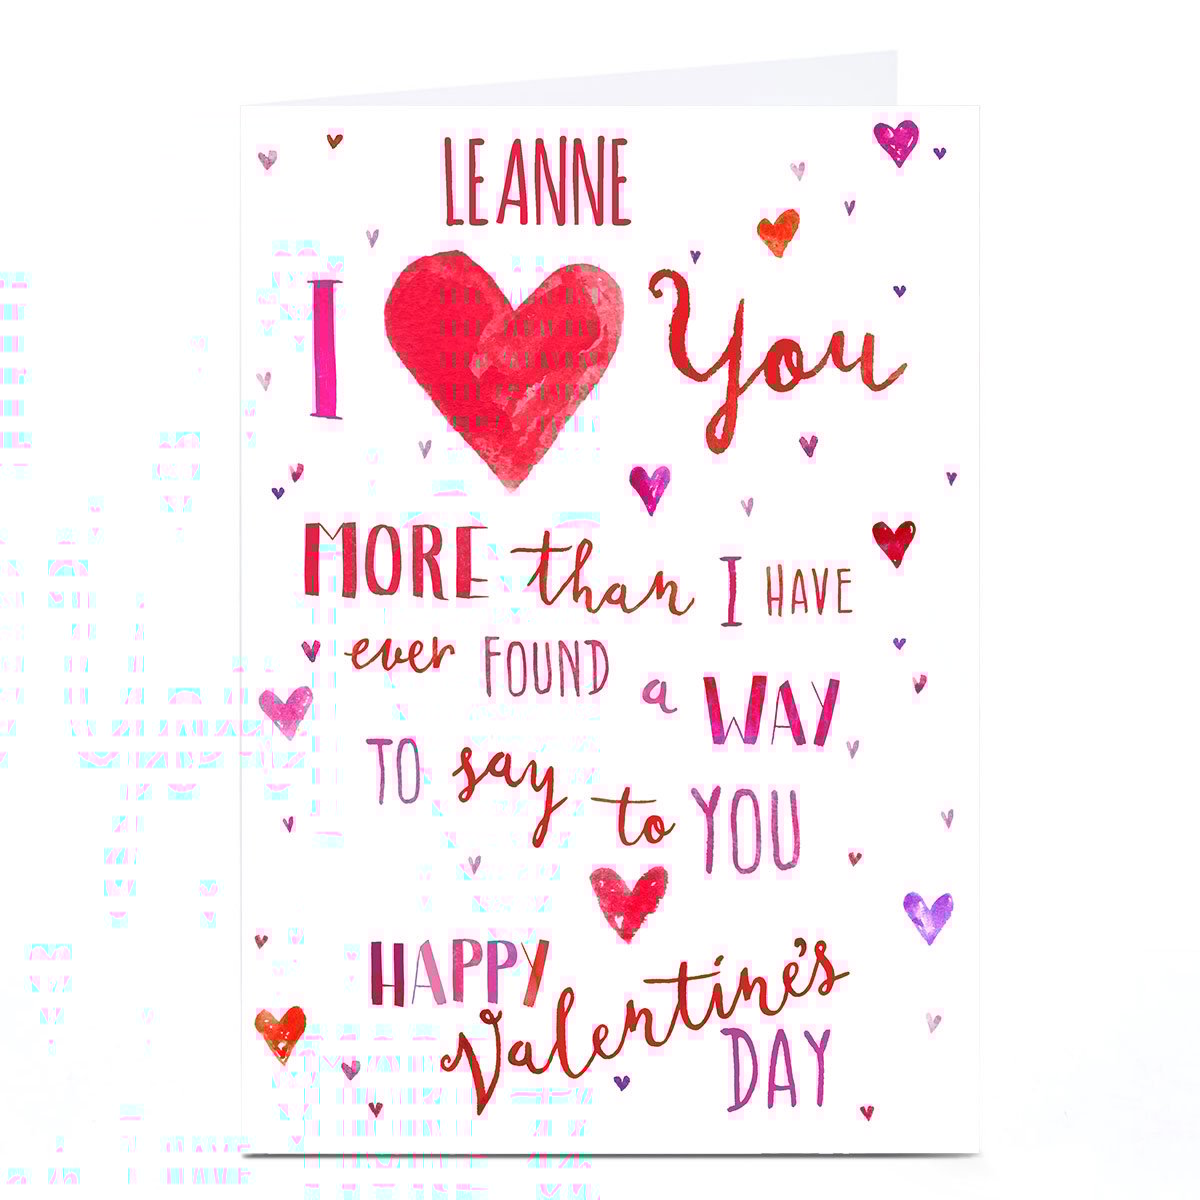 LEANNE
I You
MORE than I HAVE
ever FOUND a WAY
TO say to YOU
HAPPY Valentine's
DAY